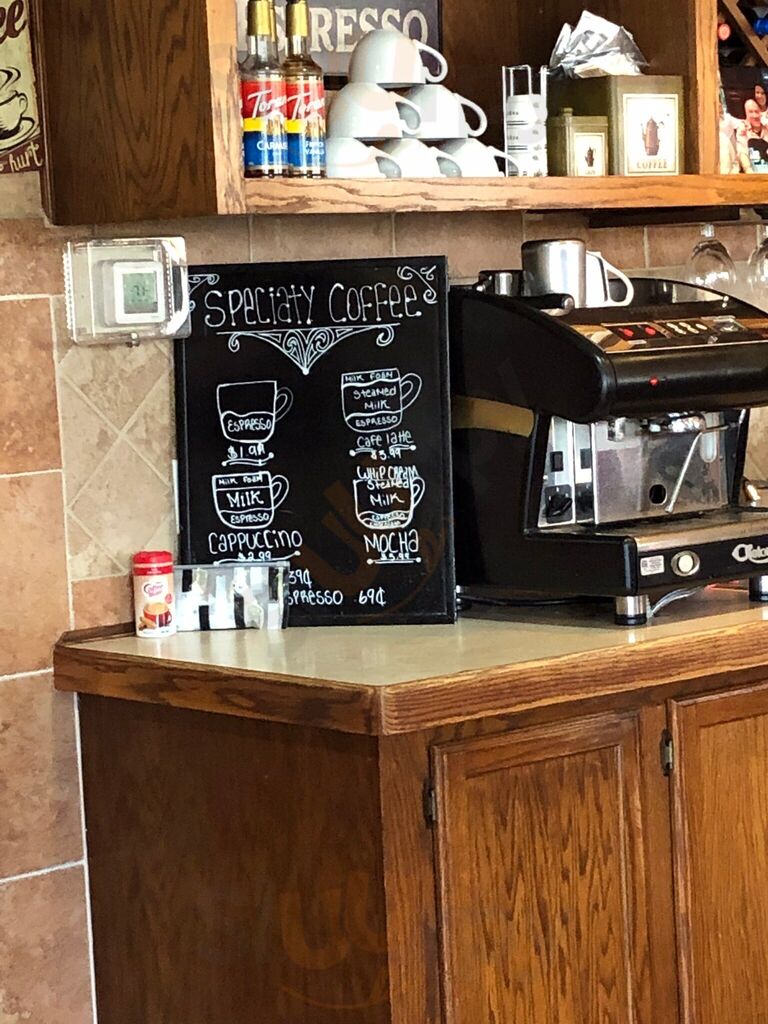 ESPRESSO
Torani
Torani
CARAMEL
COFFEE
hurt
SPECIALTY COFFEE
ESPRESSO
$1.99
MILK FOAM
STEAMED
MILK
ESPRESSO
CAFE latte
$3.99
MILK FOAM
MILK
ESPRESSO
CAPPUCCINO
$2.99
WHIP CREAM
Steamed
MILK
ESPRESSO
MOCHA
$3.99
39¢
SPRESSO .69¢
Coffee mate